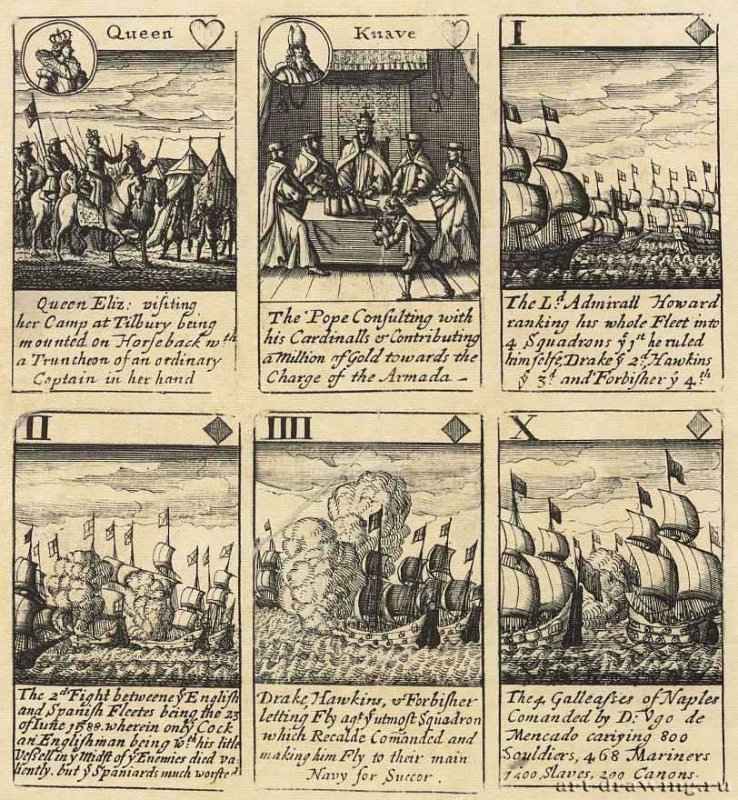 Queen
Queen Eliz: visiting
her Camp at Tilbury being
mounted on Horseback wth
a Truncheon of an ordinary
Captain in her hand
Knave
The Pope Consulting with
his Cardinalls & Contributing
a Million of Gold towards the
Charge of the Armada
I
The Ld Admirall Howard
ranking his whole Fleet into
4 Squadrons ye 1st he ruled
himselfe, Drake ye 2d Hawkins
ye 3d and Forbisher ye 4th
II
The 2d Fight betweene ye English
and Spanish Fleetes being the 23
of Iune 1588. wherein only Cock
an Englishman being wth his little
Vessell in ye Midst of ye Enemies died va=
liently. but ye Spaniards much worsted
IIII
Drake, Hawkins, & Forbisher
letting Fly agt ye utmost Squadron
which Recalde Comanded and
making him Fly to their main
Navy for Succor.
X
The 4 Galleasses of Naples
Comanded by D: Vgo de
Mencado cariying 800
Souldiers, 468 Mariners
Slaves, 200 Canons.
art-drawing.ru